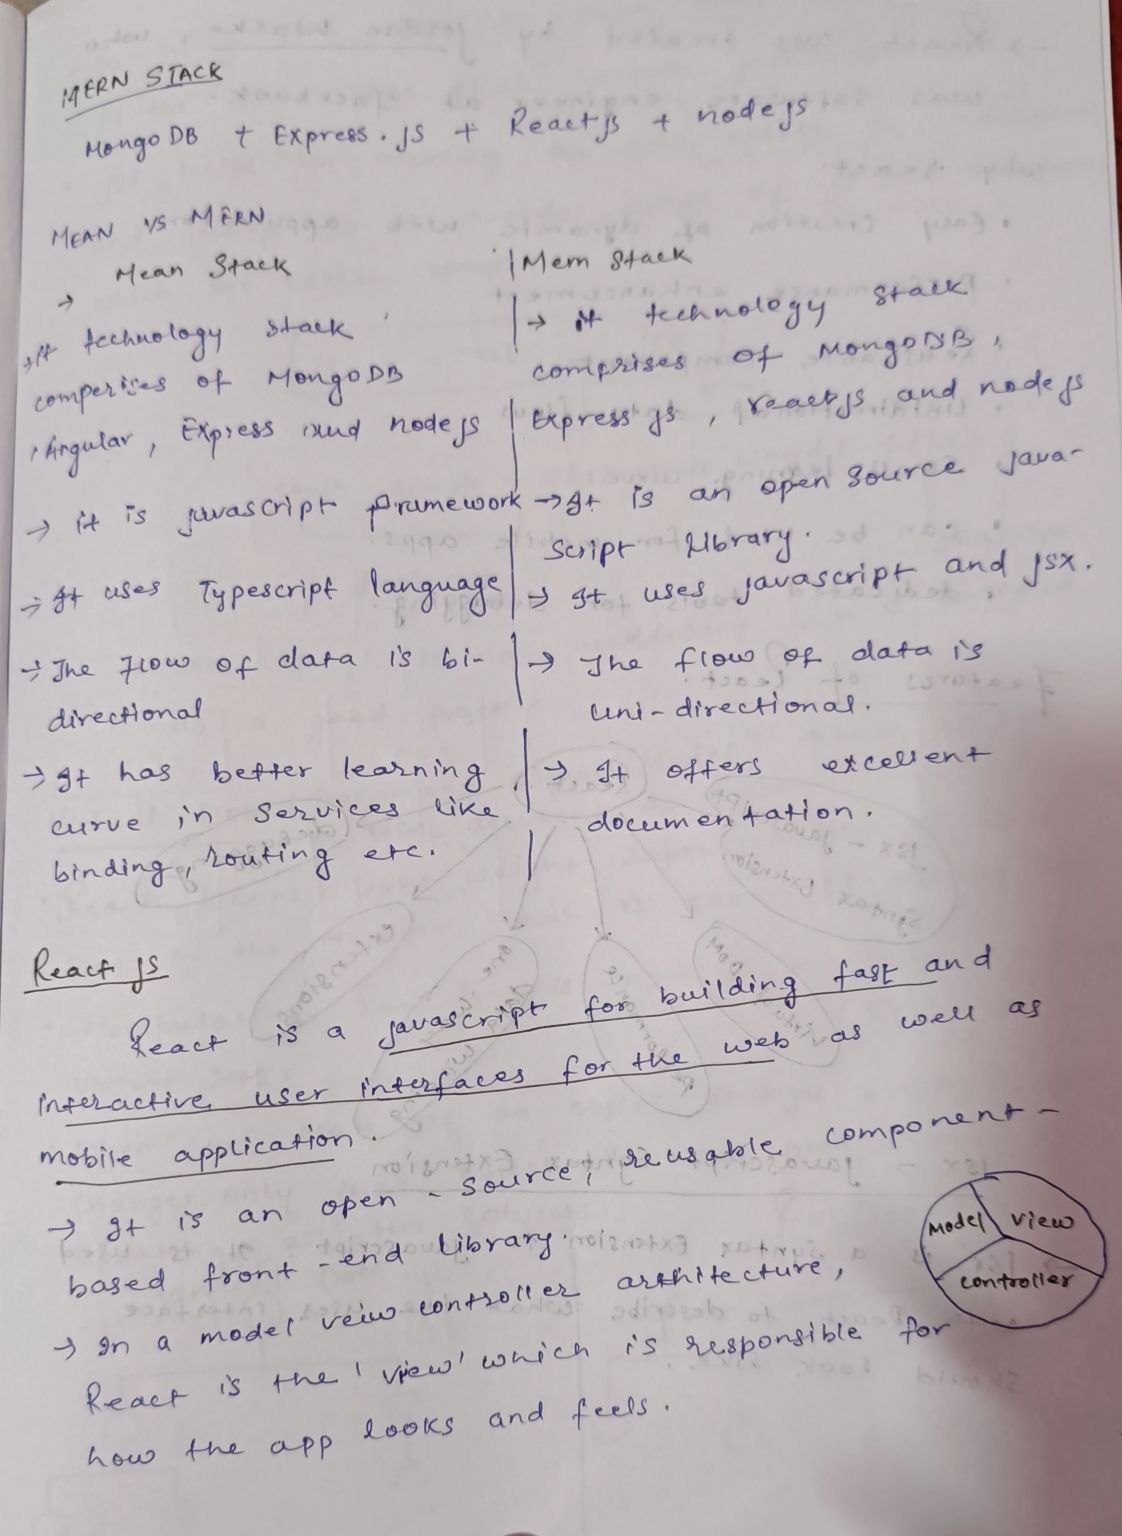 MERN STACK
MongoDB + Express.js + Reactjs + nodejs
MEAN VS MERN
Mean Stack | Mern Stack
→
→ it technology stack | → it technology stack
comperises of MongoDB | comprises of MongoDB,
Angular, Express and nodejs | Express js, reactjs and nodejs
→ it is javascript framework | → It is an open source java-
script library.
→ It uses Typescript language | → It uses javascript and jsx.
→ The flow of data is bi- | → The flow of data is
directional | uni-directional.
→ It has better learning | → It offers excellent
curve in services like | documentation.
binding, routing etc. |
React js
React is a javascript for building fast and
interactive user interfaces for the web as well as
mobile application.
→ It is an open-source, reusable component-
based front-end library.
→ In a model veiw controller architecture,
React is the 'view' which is responsible for
how the app looks and feels.
Model View
controller